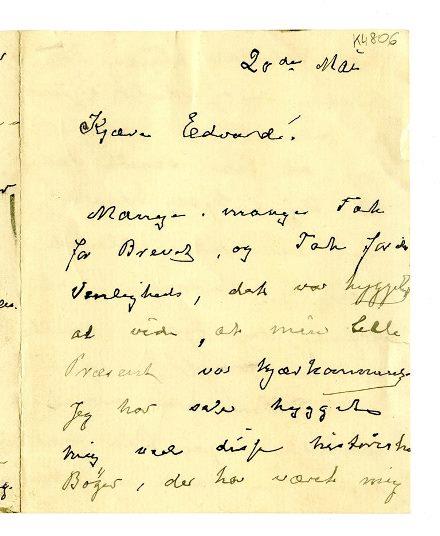 K4806
20de Mai
Kjære Edvard!
Mange, mange Tak
for Brevet, og Tak for din
Venligheds, det var hyggeligt
at vide, at min lille
Præsent var kjærkommen.
Jeg har saa hygget
mig ved disse historiske
Bøger, der har været mig